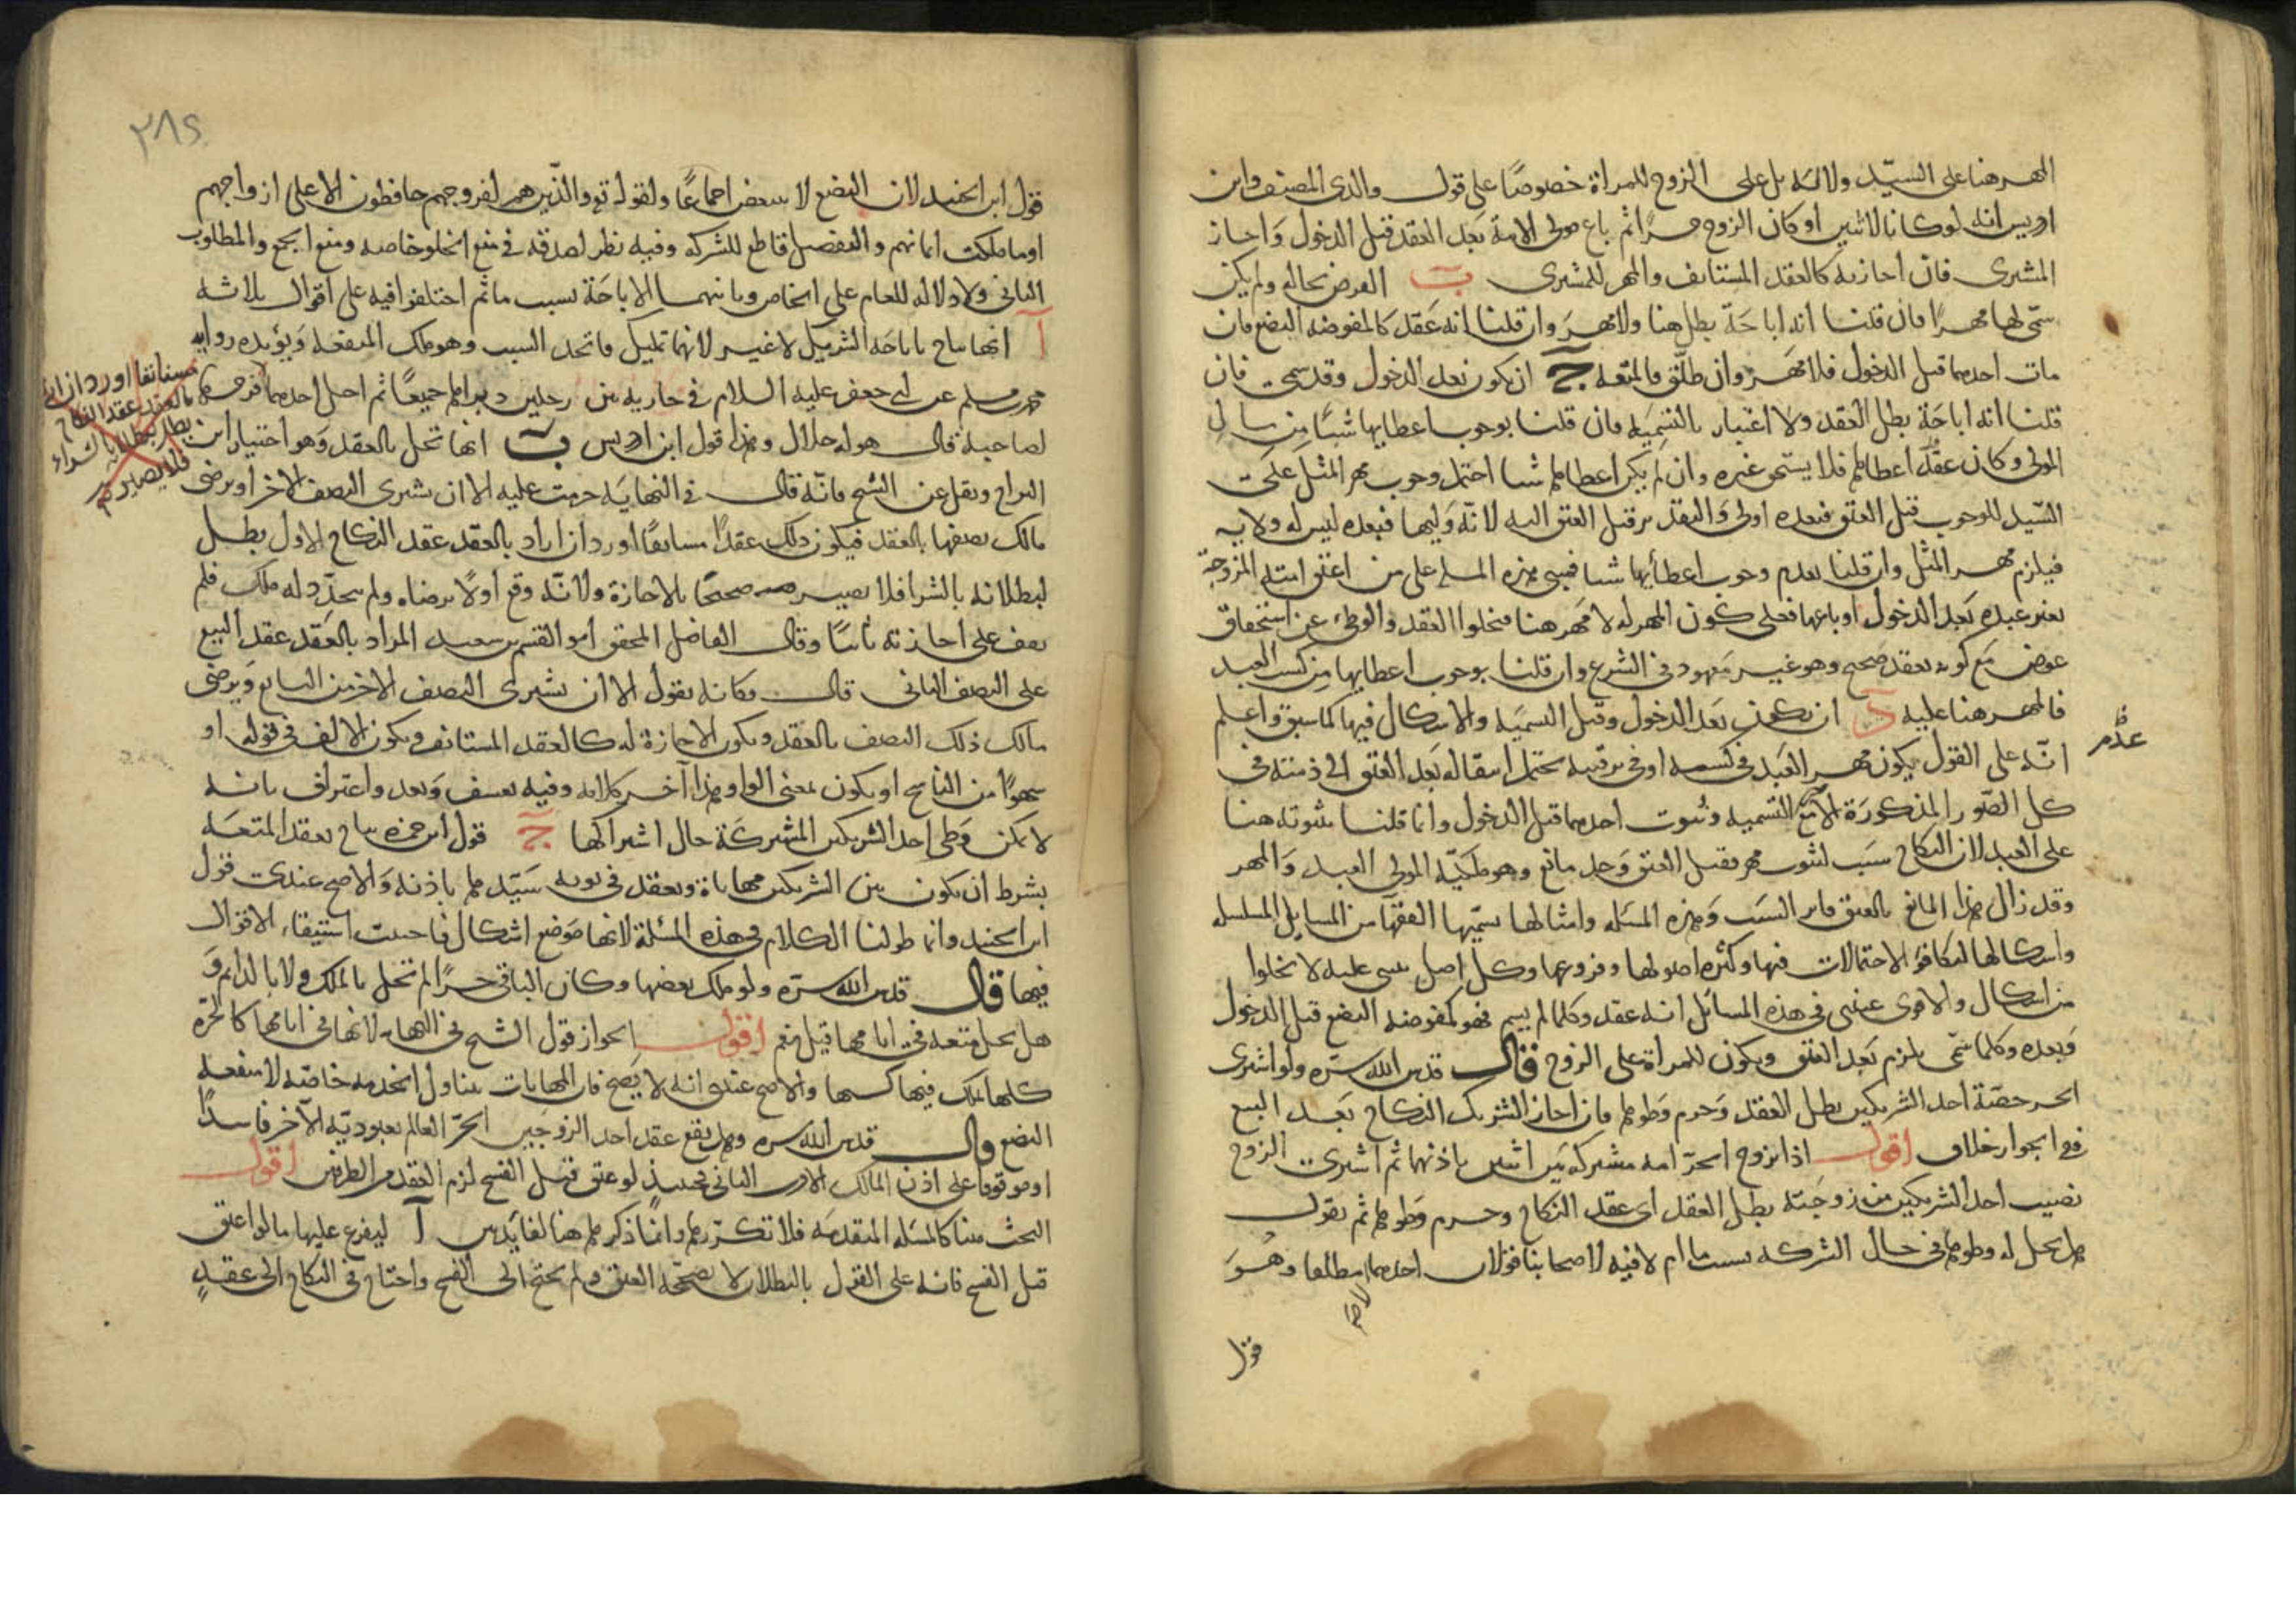 المهر هنا على السيّد ولانه بل على الزوج للمراة خصوصًا على قول والدى المصنف وابن
ادريس انه لو كانا لاثنين او كان الزوج حرًا ثم باع مولى الامة بعد العقد قبل الدخول وَاجاز
المشترى فان اجازته كالعقد المستانف والمهر للمشترى ب الفرض بحاله ولم يكن
سمّى لها مهرًا فان قلنا انه اباحَة بطل هنا ولا مهرَ وان قلنا انه عَقد كالمفوضه البضع فان
مات احدهما قبل الدخول فلا مهَر وان طلّق فالمتعه ج ان يكون بعد الدخول وقد سمى فان
قلنا انه اباحَة بطل العقد ولا اعتبار بالتسِميَه فان قلنا بوجوب اعطايها شيًا من مال
المولى وكان عقدٌ اعطاها فلا يستحق غيره وان لم يكن اعطاها شيا احتمل وجوب مهر المثل على
السّيد للوجوب قبل العتق فبعده اولى وَالتقدير قبل العتق اليه لانّه وَليها فبعده ليس له ولايه
فيلزم مهر المثل وان قلنا بعدم وجوب اعطأيها شيا فيبنى هذه المسله على من اعتق امته المزوجة
بغير عبده بَعد الدخول او باعها فعلى كون المهر له لا مهَر هنا فيخلوا العقد والوطىء عن استحقاق
عوض مَع كونه بعقد صحيح وهو غير مَعهود فى الشرع وان قلنا بوجوب اعطايها من كسب العبد
فالمهر هنا عليه د ان يكون بَعد الدخول وقبل التسميَه والاشكال فيها كما سبق واعلم
انّه على القول بكون مهر العَبد فى كسبه او فى رقبته يحتمل انتقاله بَعد العتق الى ذمته فى
عدم
كل الصّور المذكورَة الا مع التسميه وثبوت احدهما قبل الدخول وانما قلنا بثبوته هنا
على العبد لان النكاح سبَب لثبوت مهر فقبل العتق وَجد مانع وهو ملكيّة المولى العبد وَالمهر
وقد زال هذا المانع بالعتق فاثر السبَب وَهذه المسَله وامثالها يسمّيها الفقهآ من المسايل المسلسله
واشكالها لتكافؤ الاحتمالات فيها وكثره اصولها وفروعها وكل اصل يبنى عليه لا يخلوا
من اشكال والاقوى عندى فى هذه المسائل انه عقد وكلما لم يسم فهو كمفوضه البضع قبل الدخول
وَبعده وكلما سمّى يلزم بَعد العتق ويكون للمراة على الزوج قال قدس الله سرّه ولو اشترى
الحر حصّة احد الشريكين بطل العقد وَحرم وَطوها فان اجاز الشريك النكاح بَعد البيع
ففى الجواز خلاف اقول اذا تزوج الحرّ امه مشتركه بَين اثنين باذنهما ثم اشترى الزوج
نصيب احد الشريكين من زوجَته بطل العقد اى عقد النكاح وحرم وَطوها ثم نقول
هل يحل له وطوها فى حال الشركه بسبب ما ام لا فيه لاصحابنا قولان احدهما لا مطلقا وهُوَ
قول
٢٨٤
قول ابن الجنيد لان البضع لا يتبعض اجماعًا ولقوله تع والذّين هم لفروجهم حافظون الا على ازواجهم
او ما ملكت ايمانهم والتفصيل قاطع للشركه وفيه نظر لصدقه فى منع الخلو خاصه ومنع الجمع والمطلوب
الثانى ولا دلاله للعام على الخاص وثانيهما الاباحَة بسبب ما ثم اختلفوا فيه على اقوال ثلاثه
آ انها تباح باباحَه الشريك لا غير لانها تمليك فاتحد السبب وهو ملك المنفعه وَيؤيده روايه
محمد بن مسلم عن ابى جعفر عليه السلام فى جاريه بين رجلين دبراها جميعًا ثم احل احدهما فرجها
لصاحبه قال هو له حلال وهذا قول ابن ادريس ب انها تحل بالعقد وَهو اختيار ابن
البراج ونقل عن الشيخ فانّه قال فى النهايَه حرمت عليه الا ان يشترى النصف الاخر او يرضى
مالك نصفها بالعقد فيكون ذلك عقدًا مستانفًا اورد ان اراد بالعَقد عقد النكاح الاول بطل
لبطلانه بالشرا فلا يصير صحيحًا بالاجازة ولانّه وقع اولًا برضاه ولم يتجدّد له ملك فلم
يقف على اجازته ثانيًا وقال الفاضل المحقق ابو القسم بن سعيد المراد بالعَقد عقد البيع
على النصف الثانى قال فكانه يقول الا ان يشترى النصف الاخر من البايع وَيرضى
مالك ذلك النصف بالعَقد ويكون الاجازة له كالعقد المستانف ويكون الالف فى قوله او
سهوًا من الناسخ او يكون بمعنى الواو وهذا آخر كلامه وفيه تعسف وَبعد واعتراف بانه
لا يمكن وَطى احد الشريكين المشتركَة حال اشتراكها ج قول ابن حمزه تباح بعقد المتعَه
بشرط ان يكون بين الشريكين مهاياة ويعقد فى نوبه سَيّدها باذنه وَالاصح عندى قول
ابن الجنيد وانما طولنا الكلام فى هذه المسَئلة لانها مَوضع اشكال فاحببت استيفاء الاقوال
فيها قال قدس الله سرّه ولو ملك بعضها وكان الباقى حرًا لم تحل بالملك ولا بالدايم وَ
هل يحل متعه فى ايامها قيل نعم اقول الجواز قول الشيخ فى النهايه لانها فى ايامها كالحرّه
كلها تملك فيها كسبها والاصح عندى انه لا يَصح فان المهايات يتناول الخدمه خاصّه لا منفعه
البضع قال قدس الله سره وهل يقع عقد احد الزوجَين الحرّ العالم بعبوديّة الآخر فاسدًا
او موقوفا على اذن المالك الاقرب الثانى فحينئذٍ لو عتق قبل الفسخ لزم العقد من الطرفين اقول
البحث هنا كالمسَله المتقدمَه فلا تكرّرها وانمّا ذكرها هنا لفايَدتين آ ليفرع عليها ما لو اعتق
قبل الفسخ فانه على القول بالبطلان لا يصحّحه العتق ولم يحتج الى الفسخ واحتاج فى النكاح الى عقدٍ